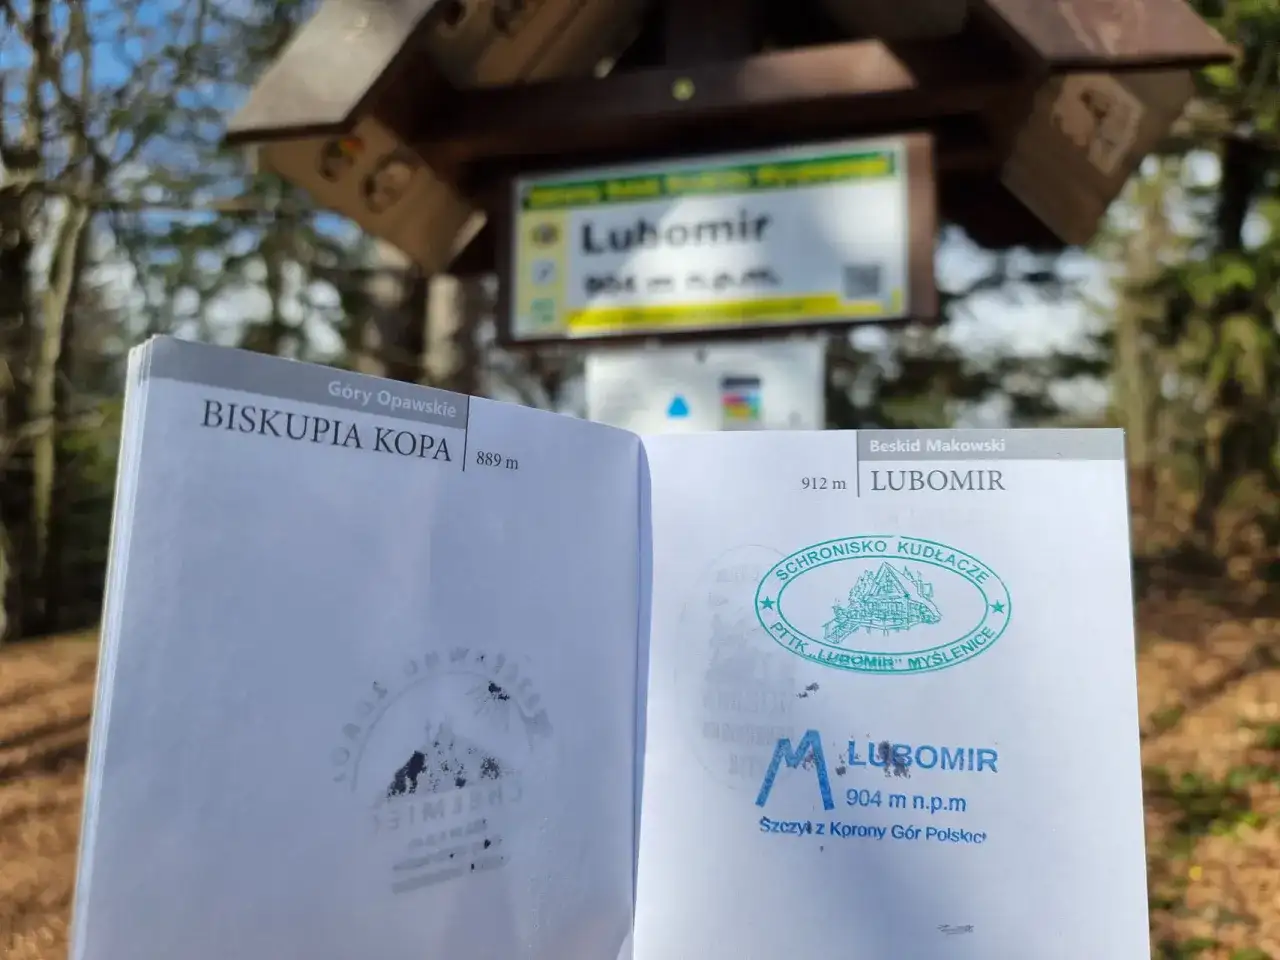 Lubomir
904 m n.p.m.
Góry Opawskie
BISKUPIA KOPA
889 m
Beskid Makowski
912 m
LUBOMIR
SCHRONISKO KUDŁACZE
PTTK „LUBOMIR" MYŚLENICE
LUBOMIR
904 m n.p.m
Szczyt z Korony Gór Polskich